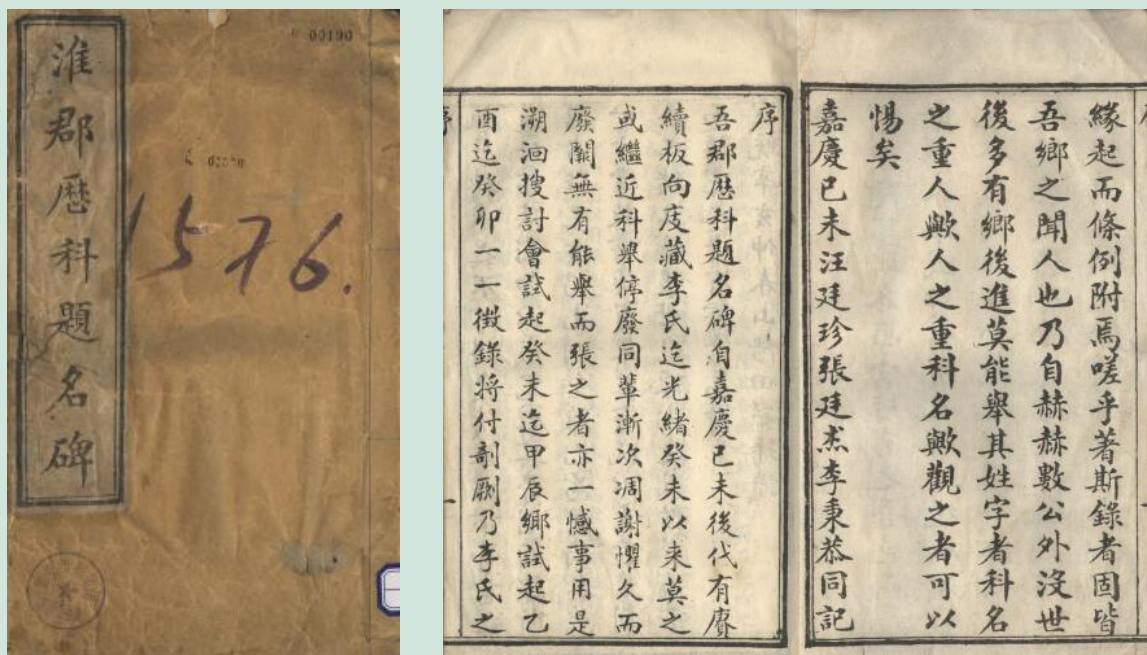 淮郡歷科題名碑
00190
1576.
緣起而條例附焉嗟乎著斯錄者固皆
吾鄉之聞人也乃自赫赫數公外沒世
後多有鄉後進莫能舉其姓字者科名
之重人歟人之重科名歟觀之者可以
惕矣
嘉慶已未汪廷珍張廷杰李秉恭同記
序
吾郡歷科題名碑自嘉慶已未後代有賡
續板向庋藏李氏迄光緒癸未以來莫之
或繼近科舉停廢同輩漸次凋謝懼久而
廢闕無有能舉而張之者亦一憾事用是
溯洄搜討會試起癸未迄甲辰鄉試起乙
酉迄癸卯一一徵錄將付剞劂乃李氏之